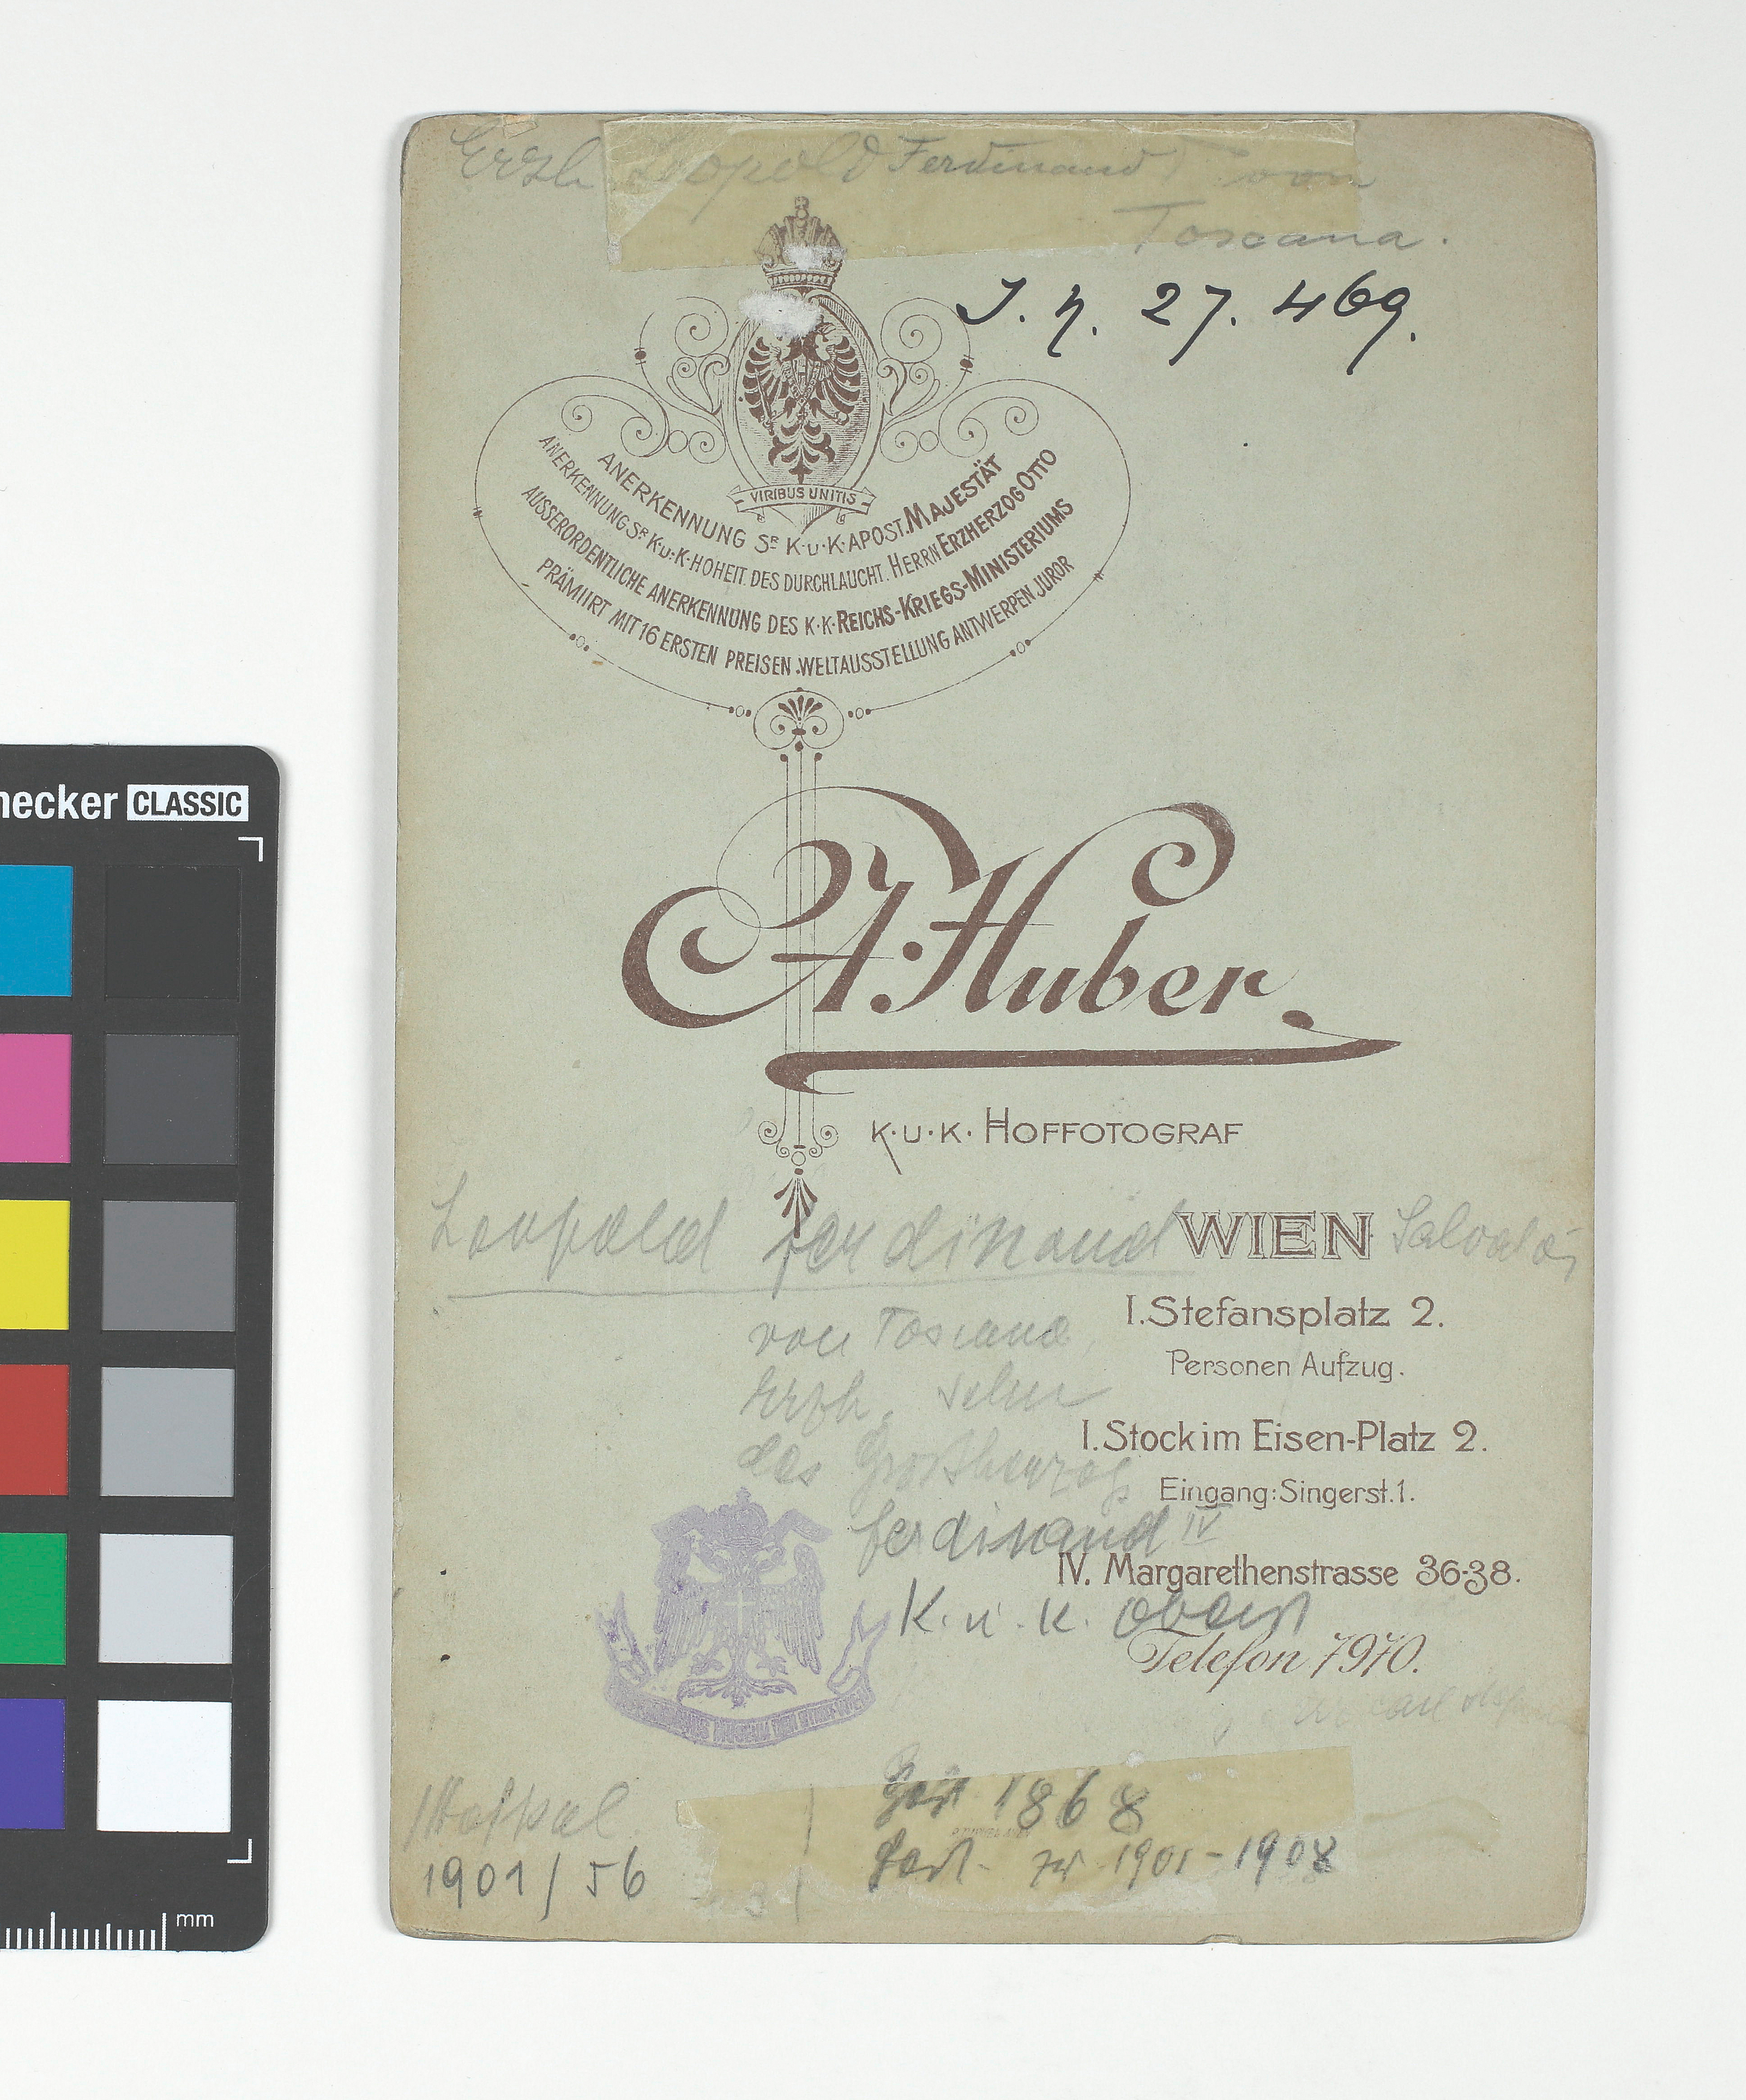 Erzh. Leopold Ferdinand von
Toscana.
J. N. 27.469.
VIRIBUS UNITIS
ANERKENNUNG SR K·U·K·APOST. MAJESTÄT
ANERKENNUNG SR K·U·K·HOHEIT. DES DURCHLAUCHT. HERRN ERZHERZOG OTTO
AUSSERORDENTLICHE ANERKENNUNG DES K·K·REICHS-KRIEGS-MINISTERIUMS
PRÄMIIRT MIT 16 ERSTEN PREISEN. WELTAUSSTELLUNG ANTWERPEN JUROR
A. Huber.
K·U·K· HOFFOTOGRAF
Leopold Ferdinand Salvator
WIEN
von Toscana,
I. Stefansplatz 2.
Personen Aufzug.
Erzh. Sohn
des Großherzog
I. Stock im Eisen-Platz 2.
Eingang: Singerst. 1.
Ferdinand IV
IV. Margarethenstrasse 36-38.
K. u. K. Oberst
Telefon 7970.
1868
1901-1908
1901/56
necker CLASSIC
mm